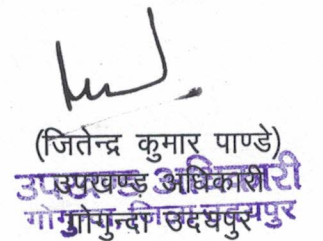 (जितेन्द्र कुमार पाण्डे)
उपखण्ड अधिकारी
गोगुन्दा उदयपुर
उपखण्ड अधिकारी
गोगुन्दा जिला उदयपुर